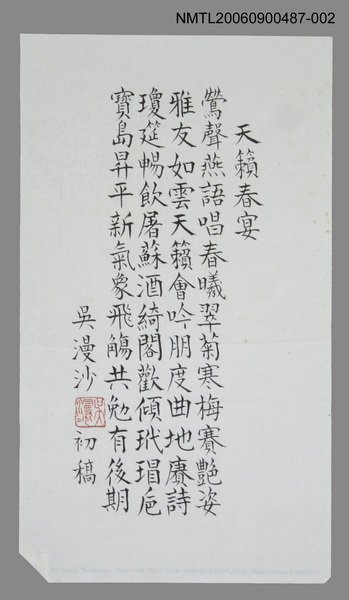 NMTL20060900487-002
天籟春宴
鶯聲燕語唱春曦翠菊寒梅賽艷姿
雅友如雲天籟會吟朋度曲地賡詩
瓊筵暢飲屠蘇酒綺閣歡傾玳瑁卮
寶島昇平新氣象飛觴共勉有後期
吳漫沙
初稿